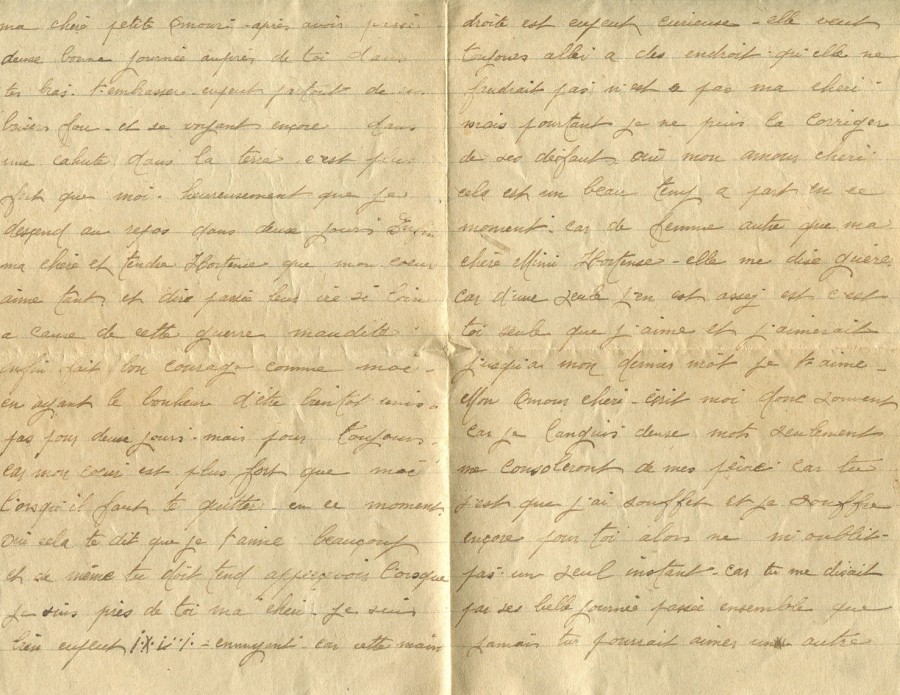 ma chère petite amour. après avoir passé
deuse bonne journée auprès de toi dans
tes bras. t'embrasser enfent partout de
baisers fou - et se voyant encore dans
une cahute dans la terre c'est plus
fort que moi. heureusement que je
dessend au repos dans deuse jours Enfin
ma chère et tendre Hortense que mon coeur
aime tant et dire si loin
a cause de cette guerre maudite
enfin fait bon courage comme moi -
en ayant le bonheur d'être bientot unis
pas pour deuse jours - mais pour toujours.
car mon coeur est plus fort que moi
l'orsqu'il faut te quitter en ce moment
oui cela te dit que je t'aime beaucoup
et de même tu doit tend apperçevoir l'orsque
je suis près de toi ma cheri je suis
bien enfent - ennuyant - car cette main
droite est enfent curieuse - elle veut
toujours aller a des endroit qu'elle ne
faudrait pas n'est e pas ma chéri
mais pourtant je ne puis la corriger
de ses défaut oui mon amour cheri
cela est un beau temp a part en ce
moment. car de femme autre que ma
chère Mimi Hortense - elle me dise guère
car d'une seule j'en est assez est c'est
toi seule que j'aime et j'aimerait
jusqu'a mon dernier mot je t'aime -
Mon Amour chéri - écrit moi donc souvent
car je languis deuse mots seulement
me consoleront de mes peine car tu
s'est que j'ai souffet et je souffre
encore pour toi alors ne m'oublit -
pas un seul instant - car tu me disait
par ses belle journée passée ensemble que
jamais tu pourrait aimer un autre